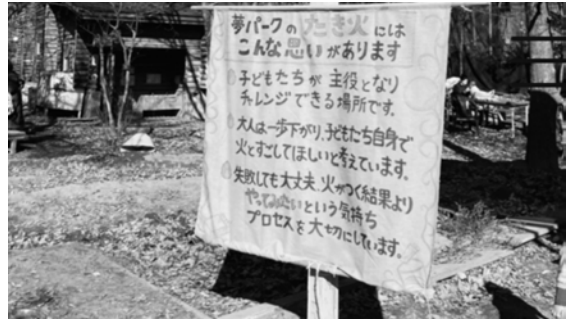 夢パークの たき火 には
こんな思いがあります
子どもたちが 主役となり
チャレンジできる場所です。
大人は一歩下がり、子どもたち自身で
火とすごしてほしいと考えています。
失敗しても大丈夫、火がつく結果より
やってみたいという気持ち
プロセスを大切にしています。